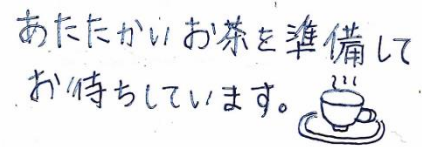 あたたかいお茶を準備して
お待ちしています。